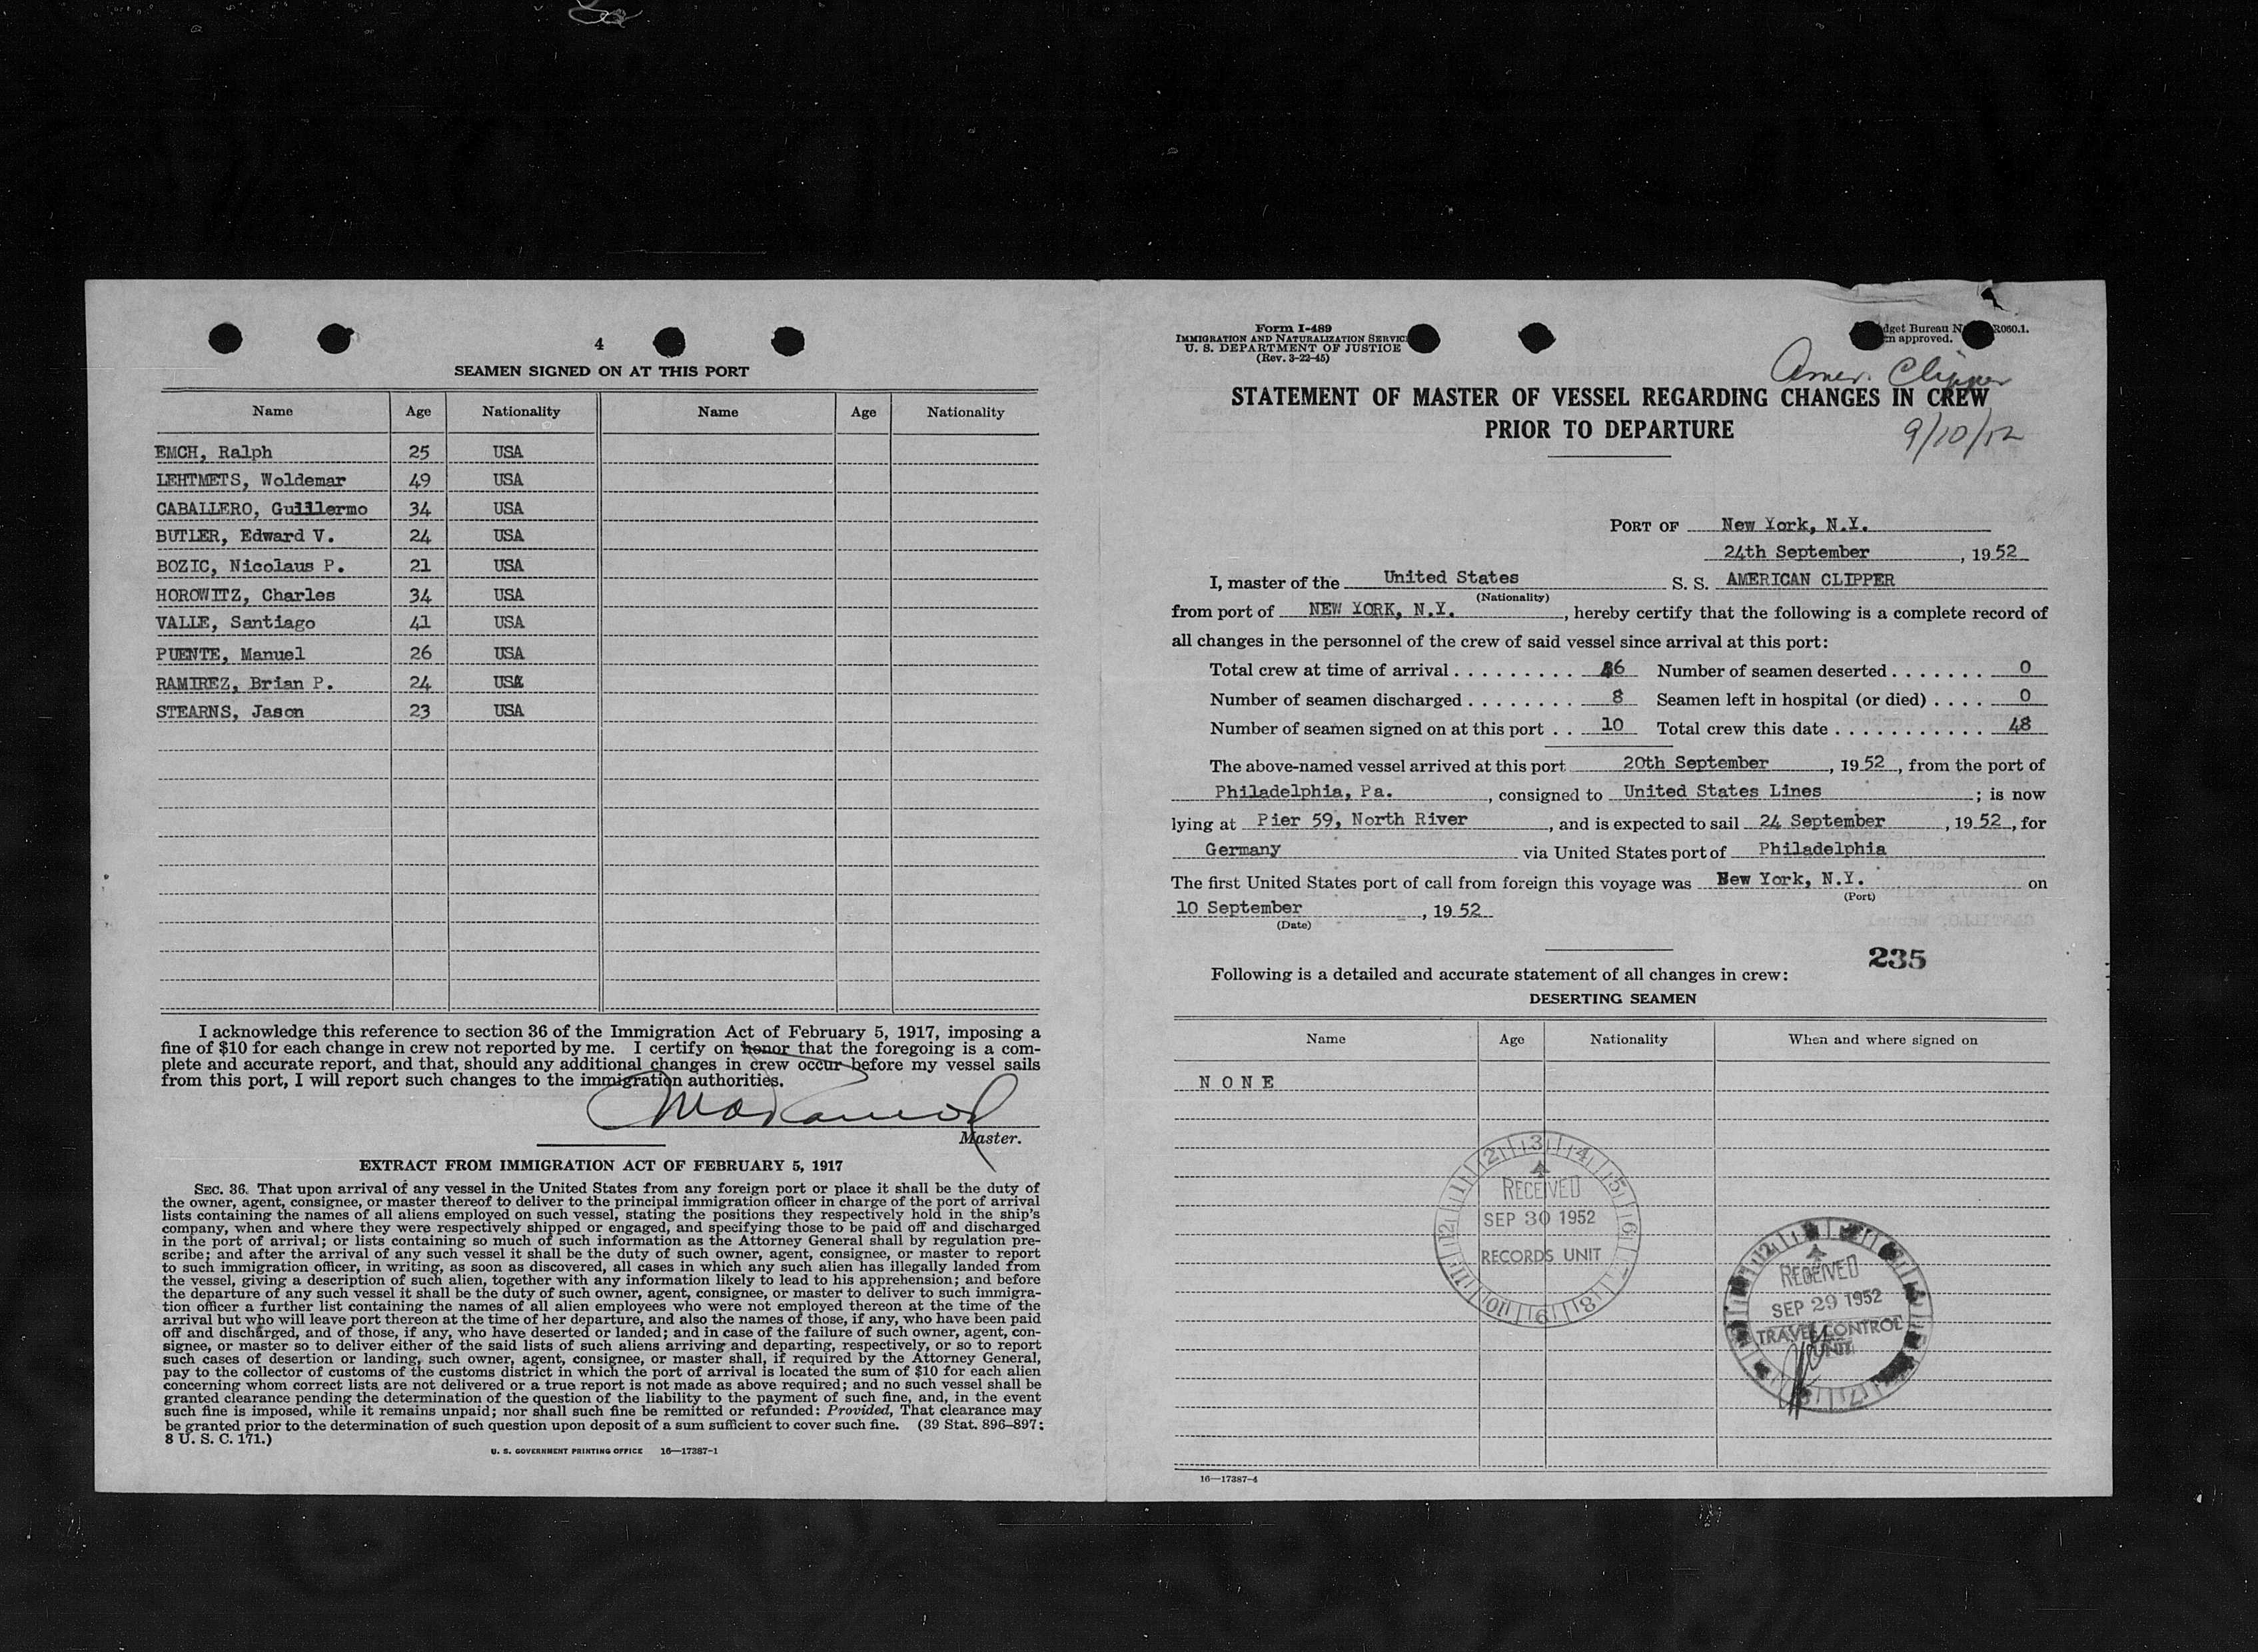 4
SEAMEN SIGNED ON AT THIS PORT
Name Age Nationality Name Age Nationality
EMCH, Ralph 25 USA
LEHTMETS, Woldemar 49 USA
CABALLERO, Guillermo 34 USA
BUTLER, Edward V. 24 USA
BOZIC, Nicolaus P. 21 USA
HOROWITZ, Charles 34 USA
VALLE, Santiago 41 USA
PUENTE, Manuel 26 USA
RAMIREZ, Brian P. 24 USA
STEARNS, Jason 23 USA
I acknowledge this reference to section 36 of the Immigration Act of February 5, 1917, imposing a
fine of $10 for each change in crew not reported by me. I certify on honor that the foregoing is a com-
plete and accurate report, and that, should any additional changes in crew occur before my vessel sails
from this port, I will report such changes to the immigration authorities.
Master.
EXTRACT FROM IMMIGRATION ACT OF FEBRUARY 5, 1917
SEC. 36. That upon arrival of any vessel in the United States from any foreign port or place it shall be the duty of
the owner, agent, consignee, or master thereof to deliver to the principal immigration officer in charge of the port of arrival
lists containing the names of all aliens employed on such vessel, stating the positions they respectively hold in the ship's
company, when and where they were respectively shipped or engaged, and specifying those to be paid off and discharged
in the port of arrival; or lists containing so much of such information as the Attorney General shall by regulation pre-
scribe; and after the arrival of any such vessel it shall be the duty of such owner, agent, consignee, or master to report
to such immigration officer, in writing, as soon as discovered, all cases in which any such alien has illegally landed from
the vessel, giving a description of such alien, together with any information likely to lead to his apprehension; and before
the departure of any such vessel it shall be the duty of such owner, agent, consignee, or master to deliver to such immigra-
tion officer a further list containing the names of all alien employees who were not employed thereon at the time of the
arrival but who will leave port thereon at the time of her departure, and also the names of those, if any, who have been paid
off and discharged, and of those, if any, who have deserted or landed; and in case of the failure of such owner, agent, con-
signee, or master so to deliver either of the said lists of such aliens arriving and departing, respectively, or so to report
such cases of desertion or landing, such owner, agent, consignee, or master shall, if required by the Attorney General,
pay to the collector of customs of the customs district in which the port of arrival is located the sum of $10 for each alien
concerning whom correct lists are not delivered or a true report is not made as above required; and no such vessel shall be
granted clearance pending the determination of the question of the liability to the payment of such fine, and, in the event
such fine is imposed, while it remains unpaid; nor shall such fine be remitted or refunded: Provided, That clearance may
be granted prior to the determination of such question upon deposit of a sum sufficient to cover such fine. (39 Stat. 896-897;
8 U. S. C. 171.)
U. S. GOVERNMENT PRINTING OFFICE 16—17387-1
Form I-489
IMMIGRATION AND NATURALIZATION SERVIC
U. S. DEPARTMENT OF JUSTICE
(Rev. 3-22-45)
dget Bureau N R060.1.
n approved.
Amer. Clipper
STATEMENT OF MASTER OF VESSEL REGARDING CHANGES IN CREW
PRIOR TO DEPARTURE
9/10/52
PORT OF New York, N.Y.
24th September, 1952
I, master of the United States S. S. AMERICAN CLIPPER
(Nationality)
from port of NEW YORK, N.Y., hereby certify that the following is a complete record of
all changes in the personnel of the crew of said vessel since arrival at this port:
Total crew at time of arrival 46 Number of seamen deserted 0
Number of seamen discharged 8 Seamen left in hospital (or died) 0
Number of seamen signed on at this port 10 Total crew this date 48
The above-named vessel arrived at this port 20th September, 1952, from the port of
Philadelphia, Pa., consigned to United States Lines; is now
lying at Pier 59, North River, and is expected to sail 24 September, 1952, for
Germany via United States port of Philadelphia
The first United States port of call from foreign this voyage was New York, N.Y. on
(Port)
10 September, 1952
(Date)
235
Following is a detailed and accurate statement of all changes in crew:
DESERTING SEAMEN
Name Age Nationality When and where signed on
NONE
RECEIVED
SEP 30 1952
RECORDS UNIT
RECEIVED
SEP 29 1952
TRAVEL CONTROL
UNIT
16—17387-4